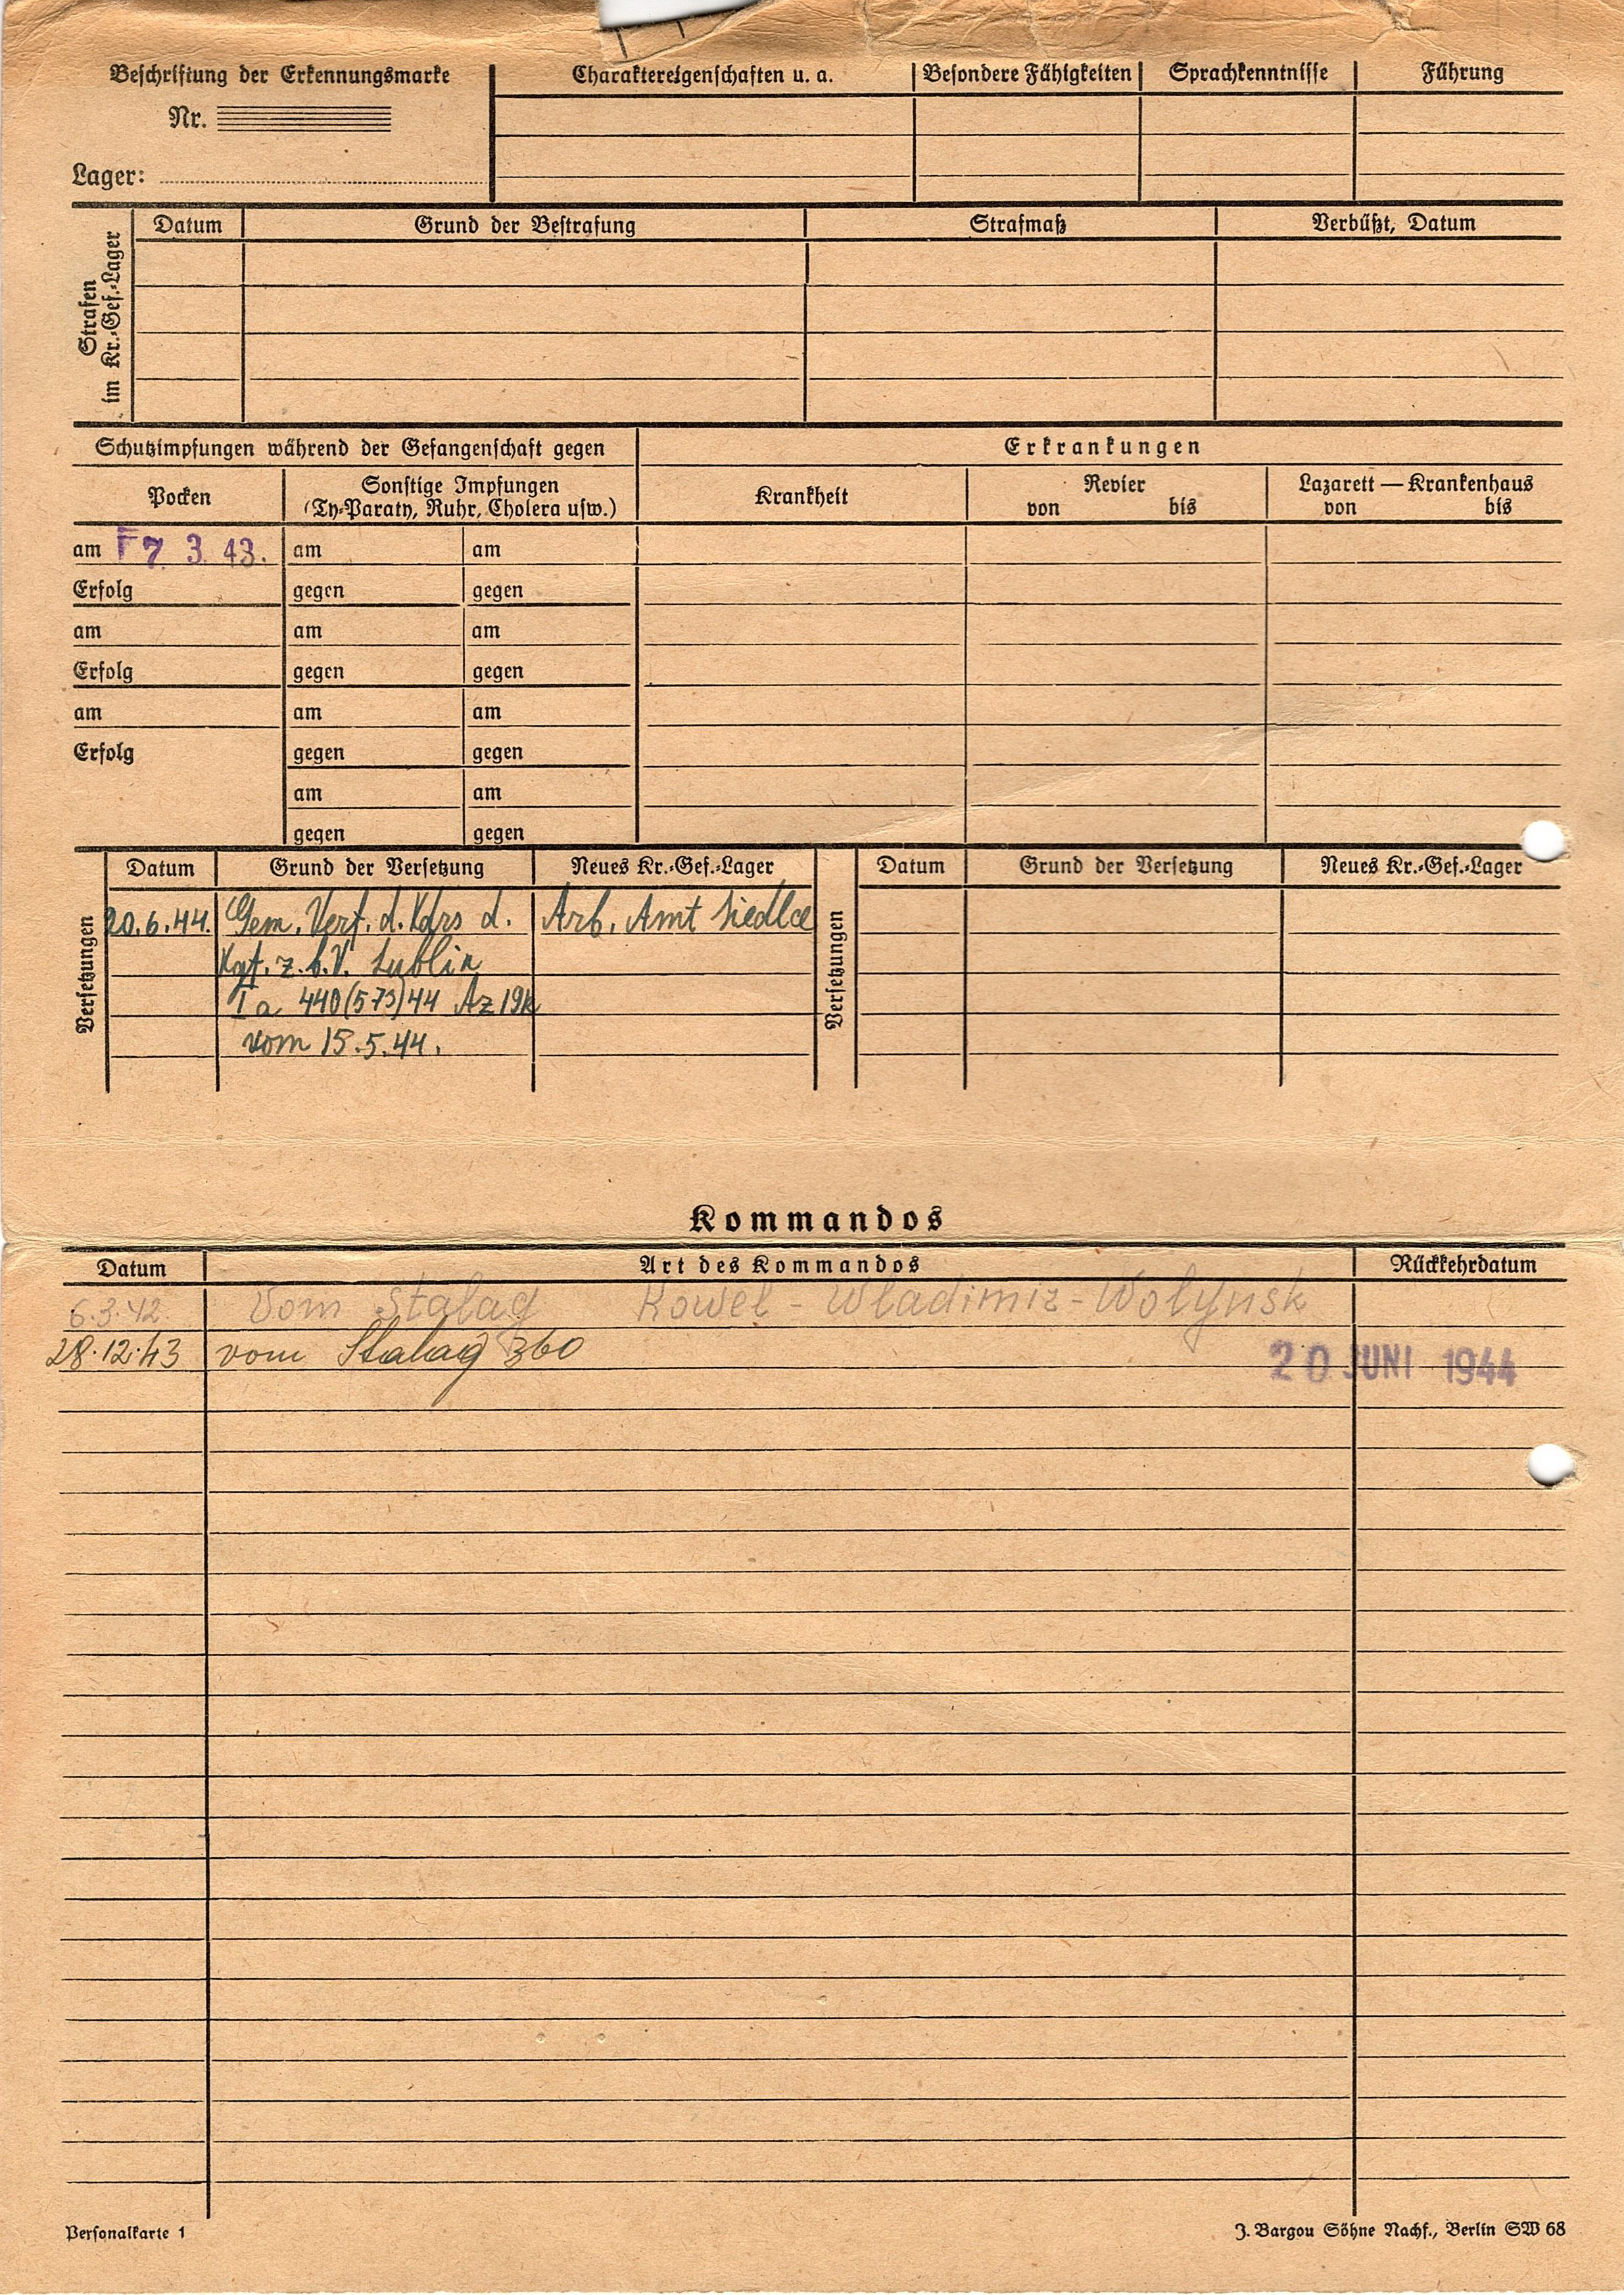 Beschriftung der Erkennungsmarke
Nr.
Lager:
Charaktereigenschaften u. a.
Besondere Fähigkeiten
Sprachkenntnisse
Führung
Strafen
im Kr.-Gef.-Lager
Datum
Grund der Bestrafung
Strafmaß
Verbüßt, Datum
Schutzimpfungen während der Gefangenschaft gegen
Erkrankungen
Pocken
Sonstige Impfungen
(Ty-Paraty, Ruhr, Cholera usw.)
Krankheit
Revier
von bis
Lazarett — Krankenhaus
von bis
am 7. 3. 43. am am
Erfolg gegen gegen
am am am
Erfolg gegen gegen
am am am
Erfolg gegen gegen
am am
gegen gegen
Versetzungen
Datum Grund der Versetzung Neues Kr.-Gef.-Lager
20.6.44. Gem. Verf. d. Kdrs d. Arb. Amt Siedlce
Kgf. z.b.V. Lublin
Ia 440(573)44 Az 19k
vom 15.5.44.
Versetzungen
Datum Grund der Versetzung Neues Kr.-Gef.-Lager
Kommandos
Datum Art des Kommandos Rückkehrdatum
6.3.42. Vom Stalag Kowel - Wladimir-Wolynsk
28.12.43 vom Stalag 360
20 JUNI 1944
Personalkarte 1
J. Bargou Söhne Nachf., Berlin SW 68